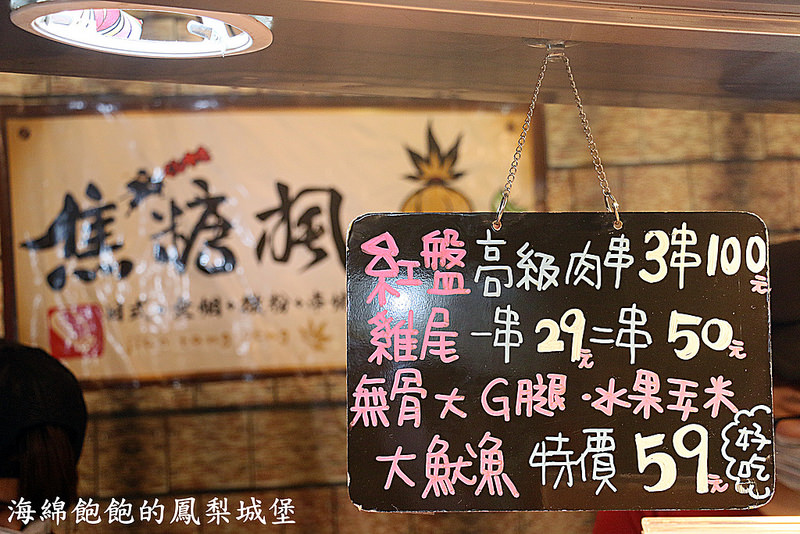 焦糖楓
紅盤高級肉串3串100元
雞尾一串29元二串50元
無骨大G腿・水果玉米
大魷魚 特價59元
好吃
海綿飽飽的鳳梨城堡